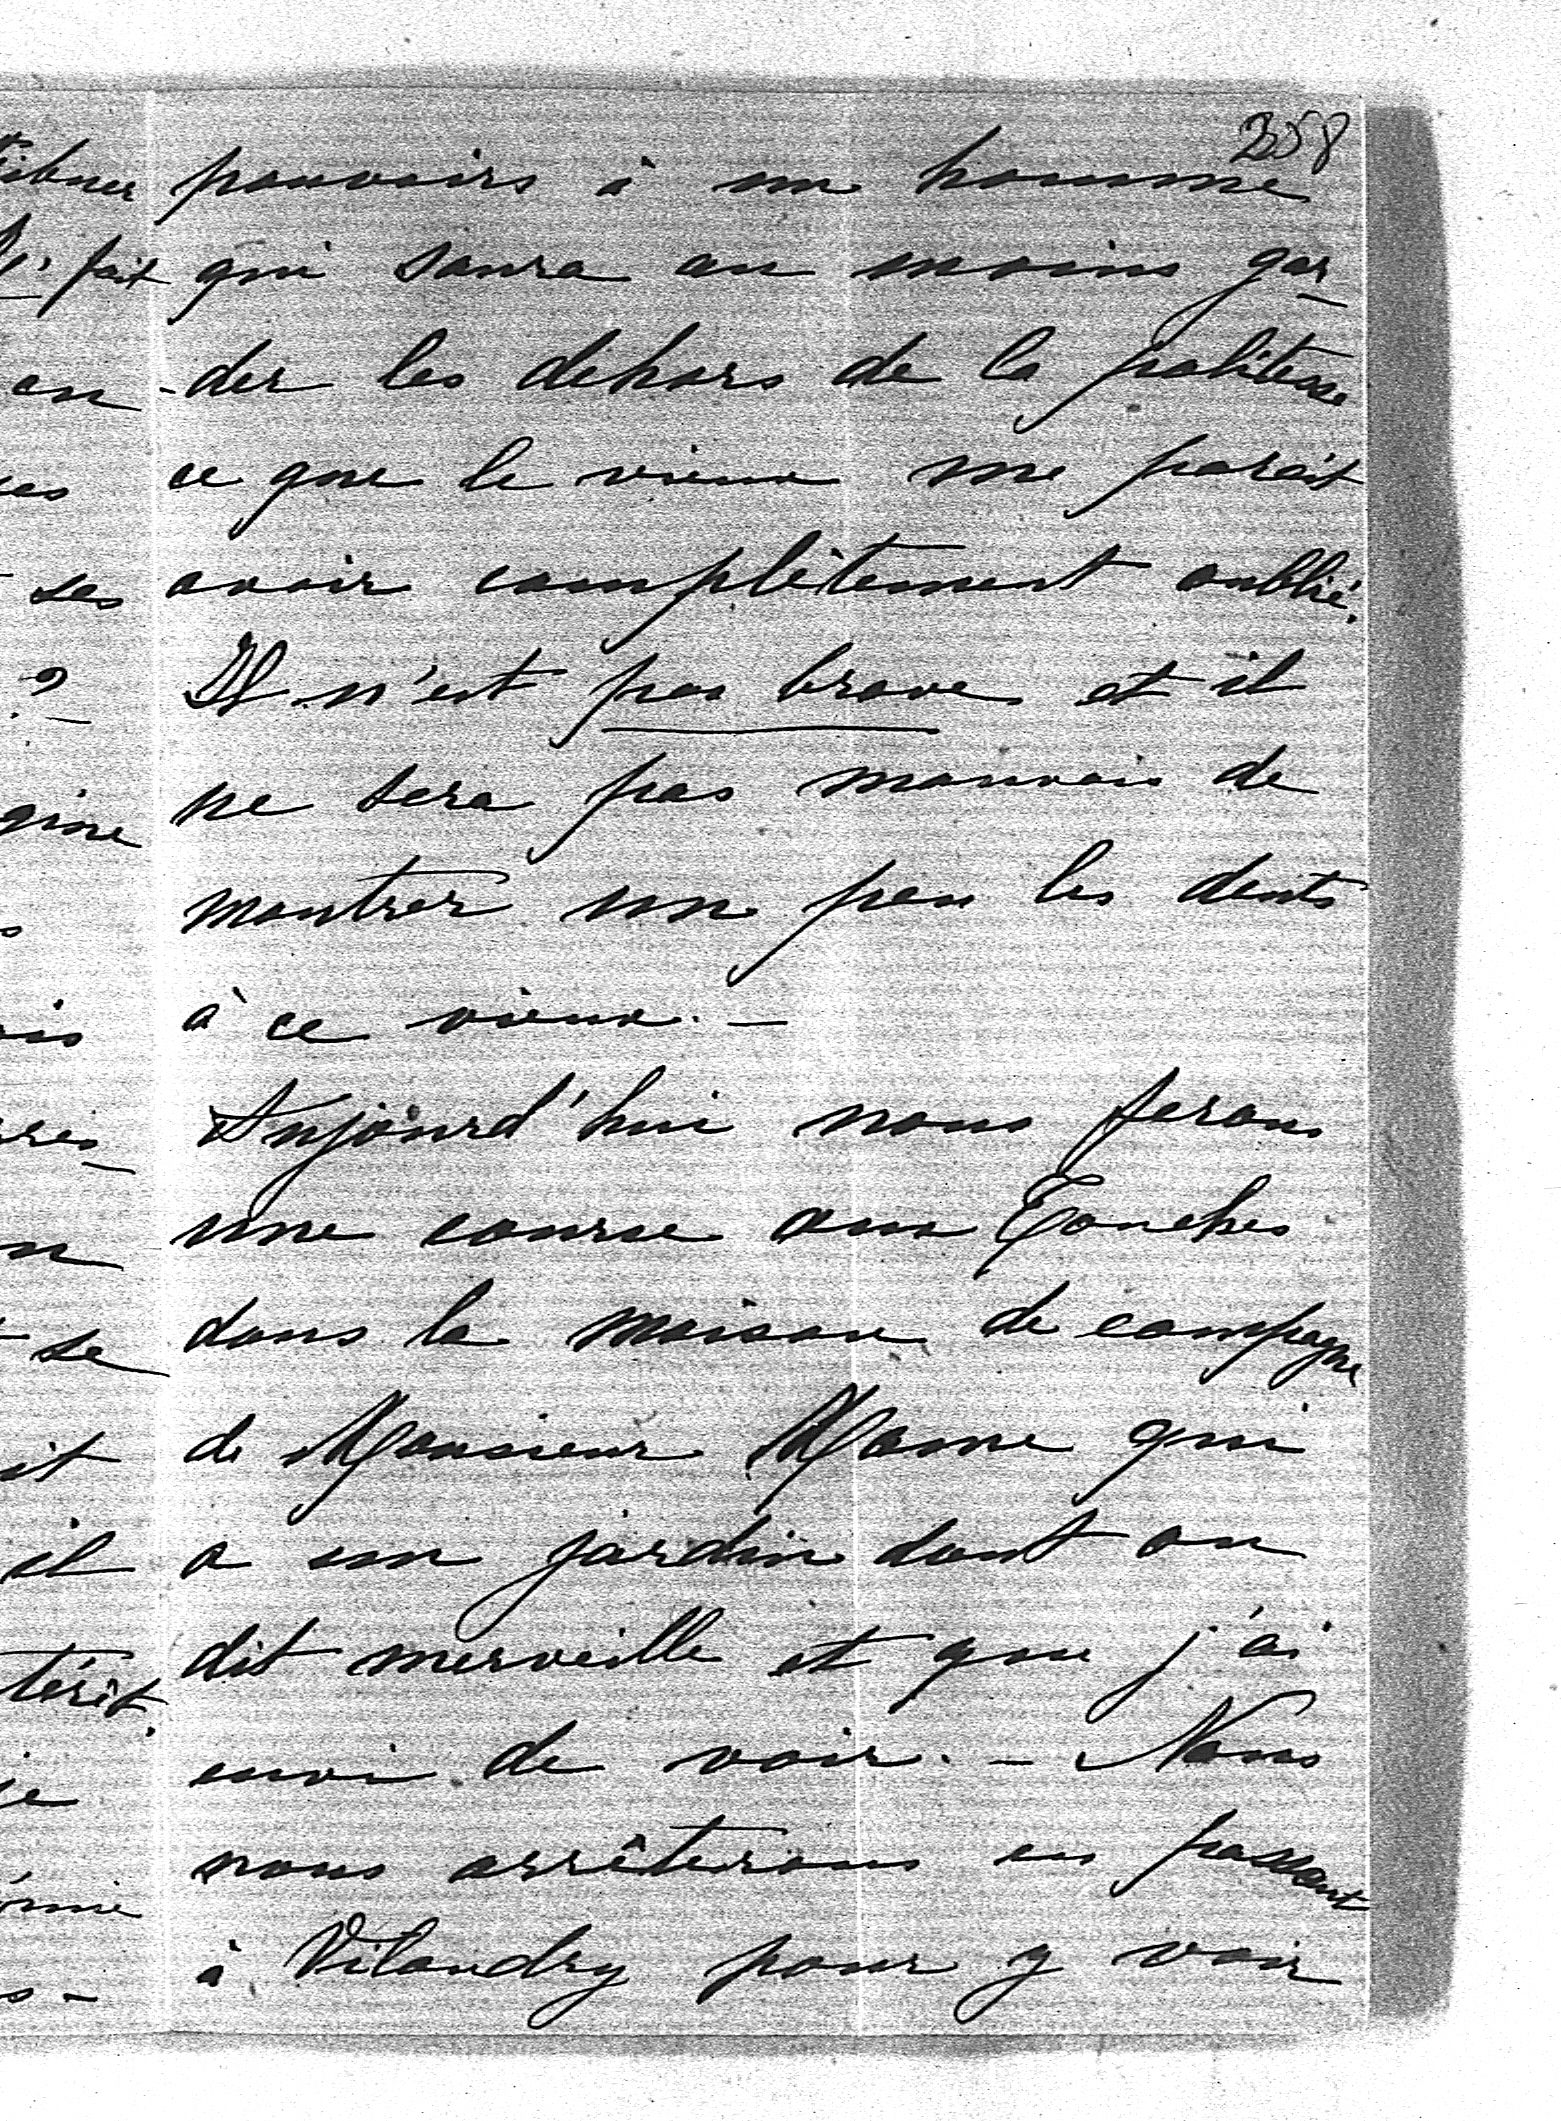 358
pouvoirs à un homme
qui saura au moins gar-
-der les dehors de la politesse
ce que le vieux me parait
avoir complètement oublié.
Il n'est pas brave et il
ne sera pas mauvais de
montrer un peu les dents
à ce vieux. —
Aujourd'hui nous ferons
une course aux Touches
dans la maison de campagne
de Monsieur Mame qui
a un jardin dont on
dit merveille et que j'ai
envi de voir. — Nous
nous arrêterons en passant
à Vilandry pour y voir
fait
en
ses
?
gine
se
il
térêt.